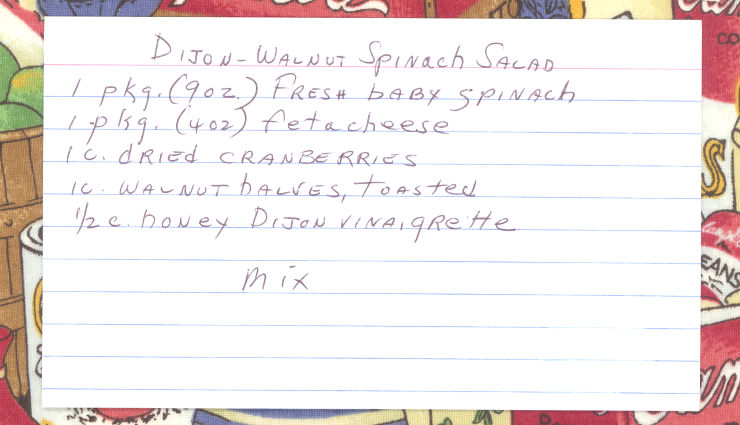 Dijon-Walnut Spinach Salad
1 pkg. (9oz.) Fresh baby spinach
1 pkg. (4oz) feta cheese
1 c. dried cranberries
1 c. walnut halves, toasted
1/2 c. honey Dijon vinaigrette
mix